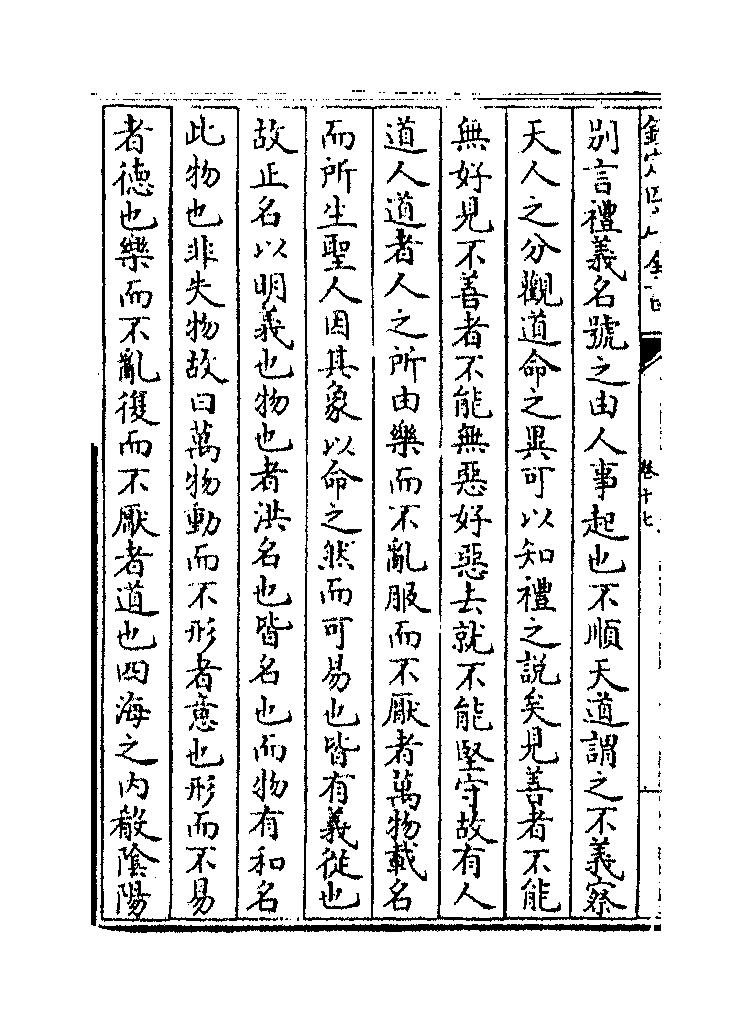 欽定四庫全書
卷十七
別言禮義名號之由人事起也不順天道謂之不義察
天人之分觀道命之異可以知禮之說矣見善者不能
無好見不善者不能無惡好惡去就不能堅守故有人
道人道者人之所由樂而不亂服而不厭者萬物載名
而所生聖人因其象以命之然而可易也皆有義從也
故正名以明義也物也者洪名也皆名也而物有和名
此物也非失物故曰萬物動而不形者意也形而不易
者德也樂而不亂復而不厭者道也四海之内殽隂陽